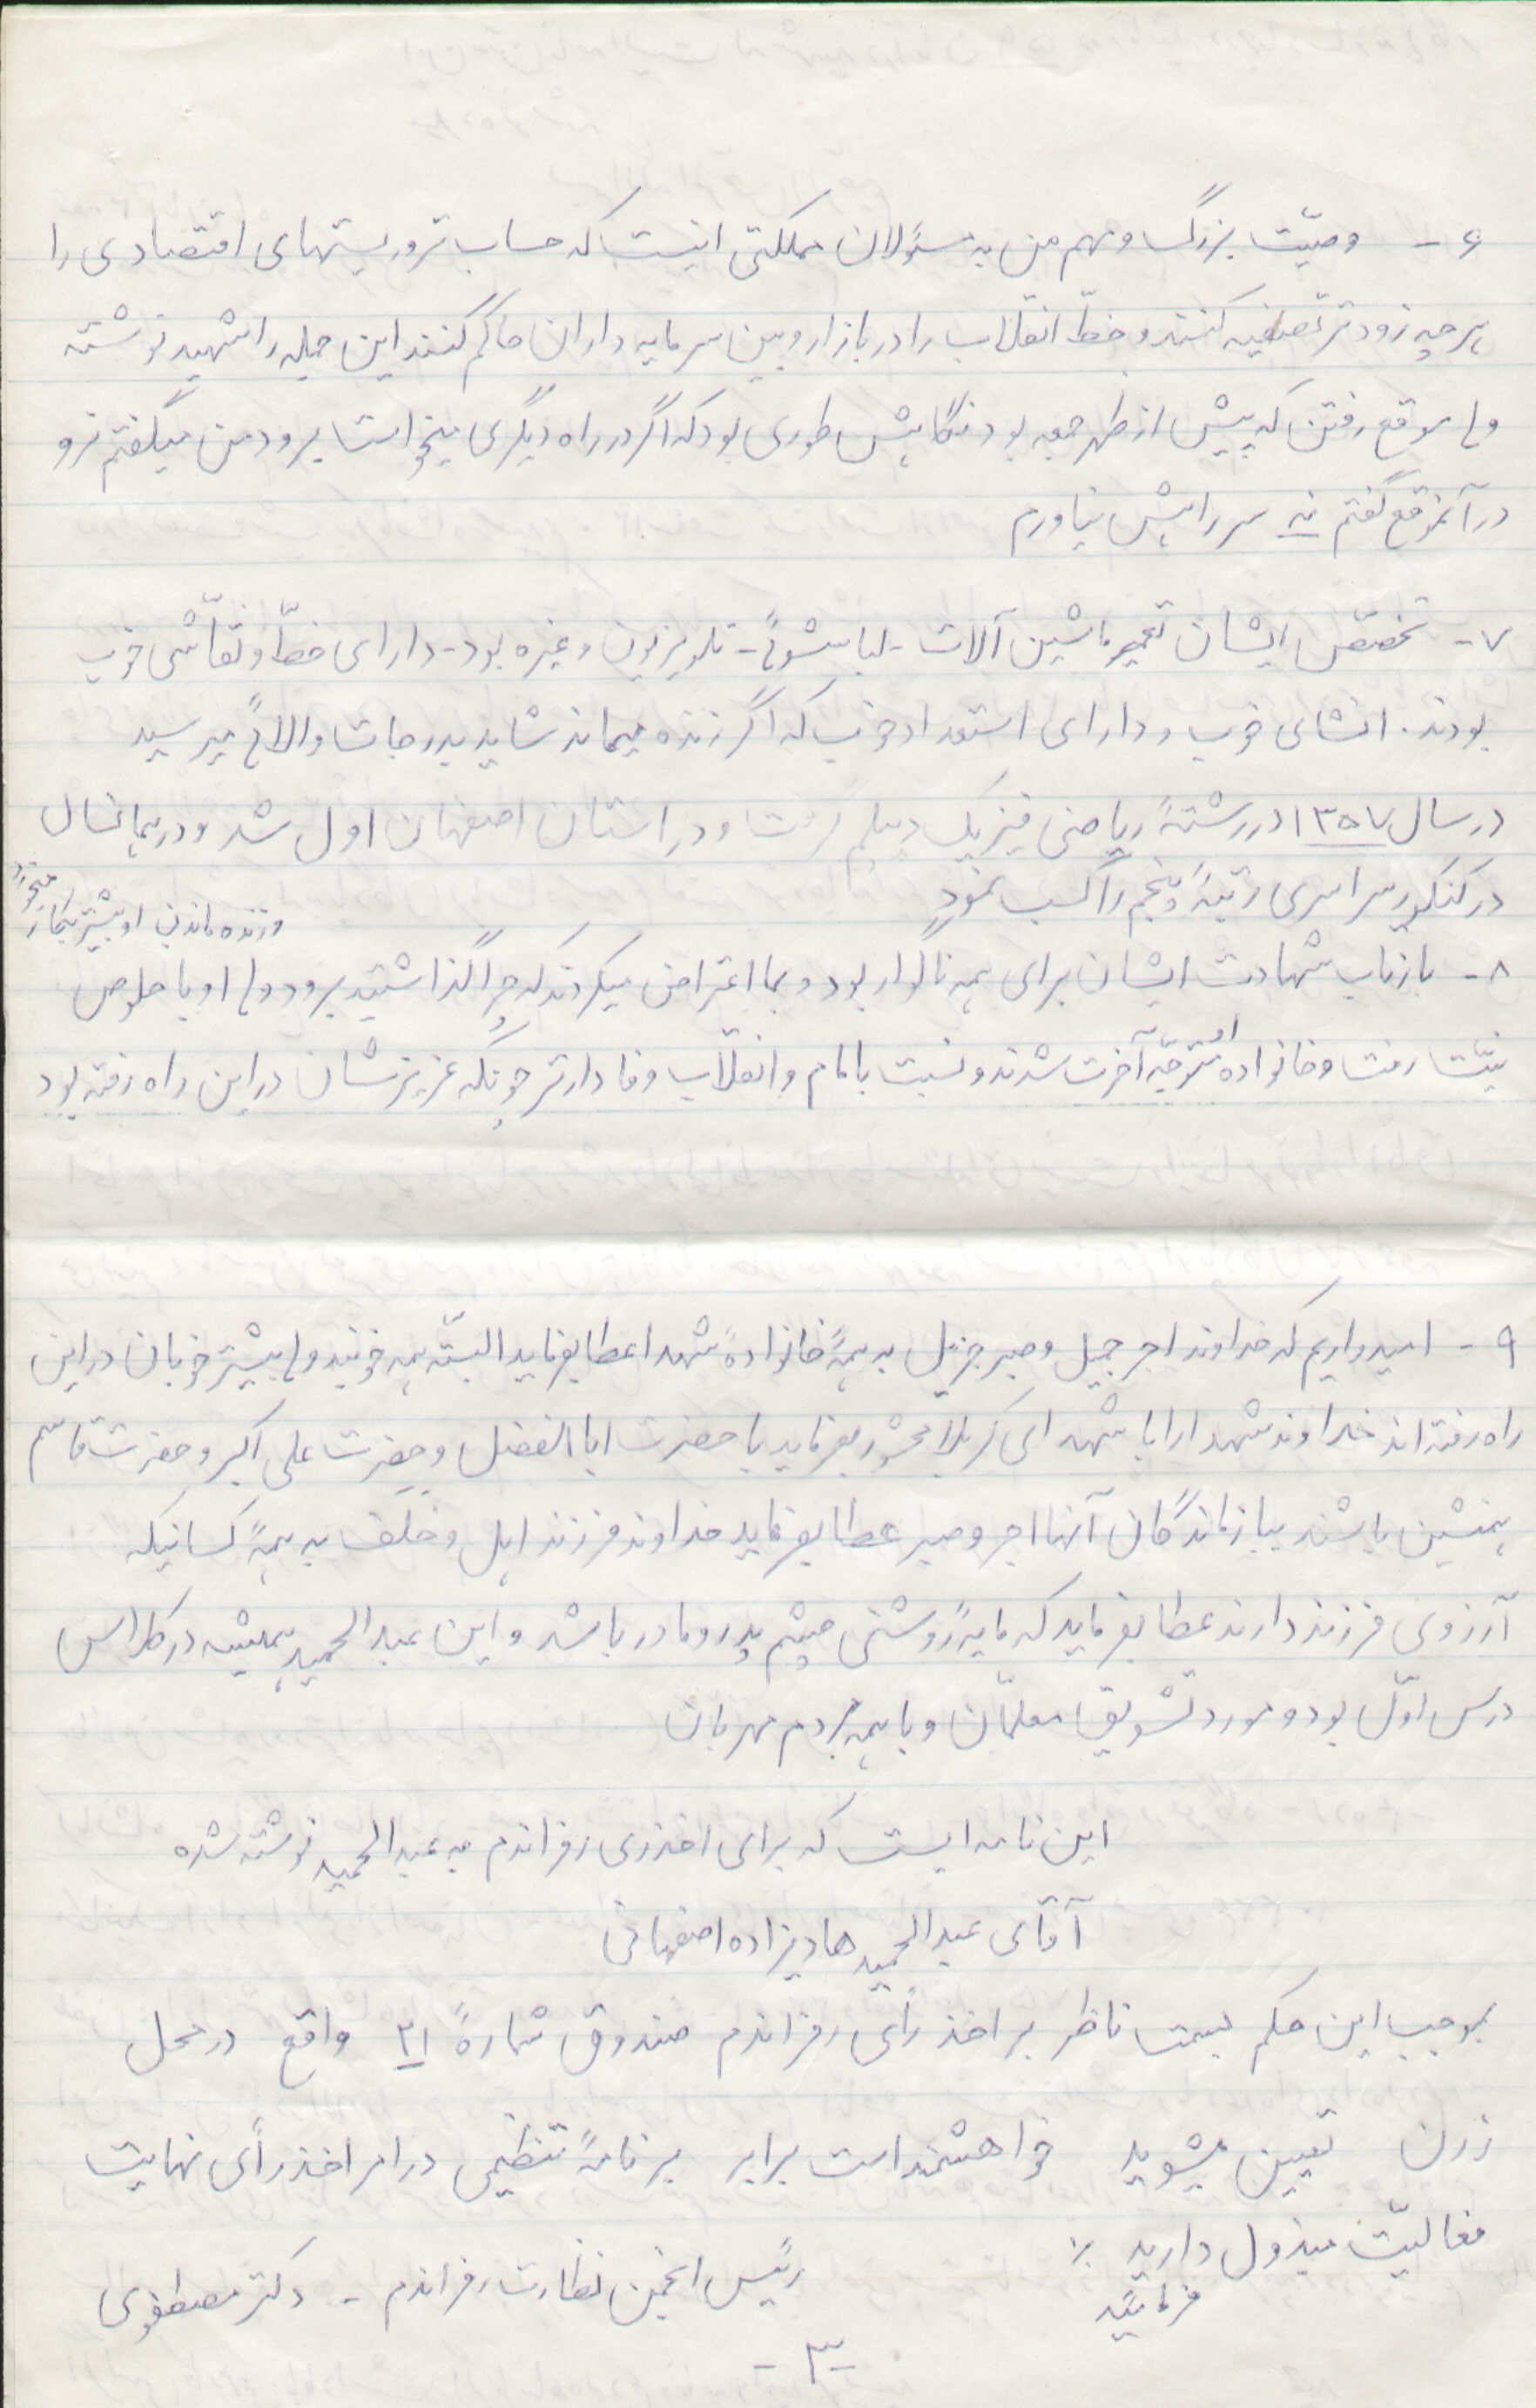 ۶ - وصیّت بزرگ و مهم من به مسؤلان مملکتی اینست که حساب تروریستهای اقتصادی را
هرچه زودتر تصفیه کنند و خطّ انقلاب را در بازار و بین سرمایه داران حاکم کنند این جمله را شهید نوشته
ولی موقع رفتن که پیش از ظهر جمعه بود نگاهش طوری بود که اگر در راه دیگری میخواست برود من میگفتم نرو
در آنموقع گفتم نه سر راهش نیاورم
۷ - تخصّص ایشان تعمیر ماشین آلات - لباسشوئی - تلویزیون و غیره بود - دارای خطّ و نقّاشی خوب
بودند . انشای خوب و دارای استعداد خوب که اگر زنده میماند شاید بدرجات والائی میرسید
در سال ۱۳۵۷ در رشتهٔ ریاضی فیزیک دیپلم گرفت و در استان اصفهان اول شد و در همانسال
در کنکور سراسری رتبهٔ پنجم را کسب نمود
و زنده ماندن او بیشتر بکار
۸ - بازتاب شهادت ایشان برای همه ناگوار بود و بما اعتراض میکردند که چرا گذاشتید برود ولی او با خلوص
نیّت رفت و خانواده او متوجّه آخرت شدند و نسبت بامام و انقلاب وفادارتر چونکه عزیزشان در این راه رفته بود
۹ - امیدواریم که خداوند اجر جمیل و صبر جزیل به همهٔ خانوادهٔ شهدا عطا بفرماید البتّه همه خوبند ولی بیشتر خوبان در این
راه رفته اند خداوند شهدا را با شهدای کربلا محشور بفرماید با حضرت اباالفضل و حضرت علی اکبر و حضرت قاسم
همنشین باشند ببازماندگان آنها اجر و صبر عطا بفرماید خداوند فرزند اهل و خلف به همهٔ کسانیکه
آرزوی فرزند دارند عطا بفرماید که مایهٔ روشنی چشم پدر و مادر باشد و این عبدالحمید همیشه در کلاس
درس اوّل بود و مورد تشویق معلمّان و با همه مردم مهربان
این نامه ایست که برای اخذ ری رفراندم به عبدالحمید نوشته شده
آقای عبدالحمید هادیزاده اصفهانی
بموجب این حکم بسمت ناظر بر اخذ رأی رفراندم صندوق شمارهٔ ۳۱ واقع در محل
زرن تعیین میشوید خواهشمند است برابر برنامهٔ تنظیمی در امر اخذ رأی نهایت
فعالیّت مبذول دارید ٪
فرمائید
رئیس انجمن نظارت رفراندم - دکتر مصطفوی
- ۳ -